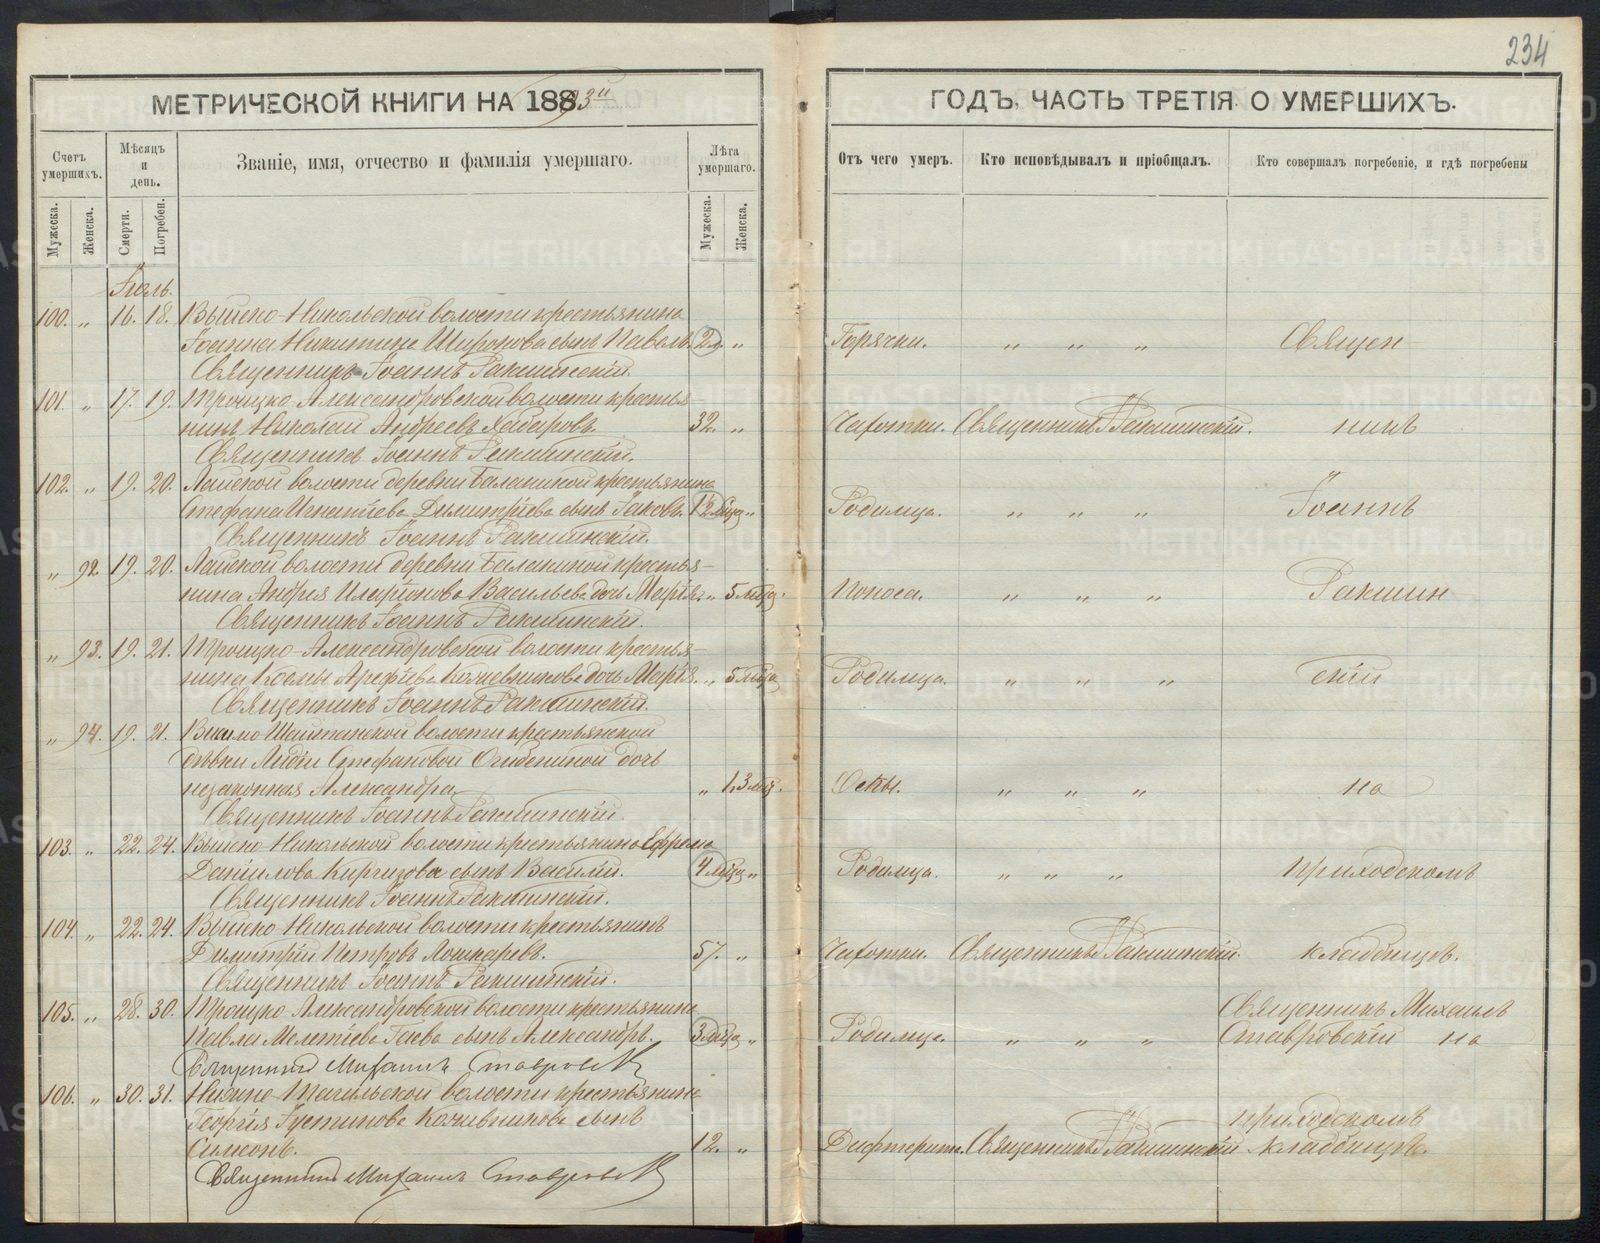 234
МЕТРИЧЕСКОЙ КНИГИ НА 1893й
ГОДЪ, ЧАСТЬ ТРЕТІЯ О УМЕРШИХЪ.
Счетъ умершихъ.
Мѣсяцъ и день.
Званіе, имя, отчество и фамилія умершаго.
Лѣта умершаго.
Отъ чего умеръ.
Кто исповѣдывалъ и пріобщалъ.
Кто совершалъ погребеніе, и гдѣ погребены
Мужеска.
Женска.
Смерти.
Погребен.
Мужеска.
Женска.
Іюль.
100. „ 16. 18. Выйско-Никольской волости крестьянина
Іоанна Никитина Широкова сынъ Павелъ 2 „ Горячки. „ „ „ Священ-
Священникъ Іоаннъ Ракшинскій.
101. „ 17. 19. Троицко-Александровской волости крестья-
нинъ Николай Андреевъ Хабаровъ. 32. „ Чахотки. Священникъ І Ракшинскій. никъ
Священникъ Іоаннъ Ракшинскій.
102. „ 19. 20. Лайской волости деревни Балакиной крестьянина
Стефана Игнатіева Димитріева сынъ Іаковъ. „ Родимца. „ „ „ Іоаннъ
Священникъ Іоаннъ Ракшинскій.
„ 92. 19. 20. Лайской волости деревни Балакиной крестья-
нина Андрея Иларіонова Васильева дочь Марія. „ 5 мѣц. Поноса. „ „ „ Ракшин
Священникъ Іоаннъ Ракшинскій.
„ 93. 19. 21. Троицко-Александровской волости крестья-
нина Космы Арефіева Кожевникова дочь Марія. „ 5 мѣца Родимца. „ „ „ скій
Священникъ Іоаннъ Ракшинскій.
„ 94. 19. 21. Висимо Шайтанской волости крестьянской
дѣвки Лидіи Стефановой Огибениной дочь
незаконная Александра „ 1,3 мѣц. Оспы. „ „ „ на
Священникъ Іоаннъ Ракшинскій.
103. „ 22. 24. Выйско-Никольской волости крестьянина Ефрема
Данилова Киргизова сынъ Василій. 4 мѣца „ Родимца. „ „ „ приходскомъ
Священникъ Іоаннъ Ракшинскій.
104. „ 22. 24. Выйско-Никольской волости крестьянинъ
Димитрій Петровъ Лошкаревъ. 57. „ Чахотки. Священникъ І Ракшинскій. кладбищѣ.
Священникъ Іоаннъ Ракшинскій.
105. „ 28. 30. Троицко Александровской волости крестьянина Священникъ Михаилъ
Павла Мелетіева Гаева сынъ Александръ. 3 мѣца „ Родимца. „ „ „ Ставровскій на
Священникъ Михаилъ Ставровскій
106. „ 30. 31. Нижне-Тагильской волости крестьянина
Георгія Іустинова Кожевникова сынъ приходскомъ
Симеонъ. 12. „ Дифтерита. Священникъ І Ракшинскій кладбищѣ.
Священникъ Михаилъ Ставровскій
METRIKI.GASO-URAL.RU